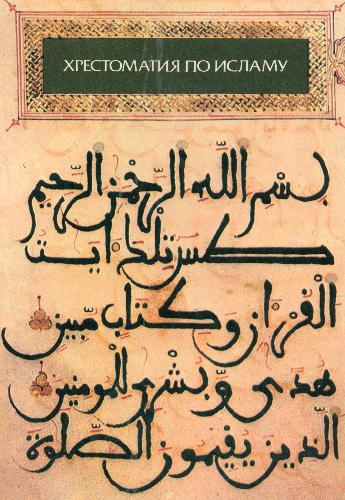 ХРЕСТОМАТИЯ ПО ИСЛАМУ
بِسْمِ اللَّهِ الرَّحْمَٰنِ الرَّحِيمِ
طس تِلْكَ ءَايَٰتُ
الْقُرْءَانِ وَكِتَابٍ مُّبِينٍ
هُدًى وَبُشْرَىٰ لِلْمُومِنِينَ
الَّذِينَ يُقِيمُونَ الصَّلَوٰةَ